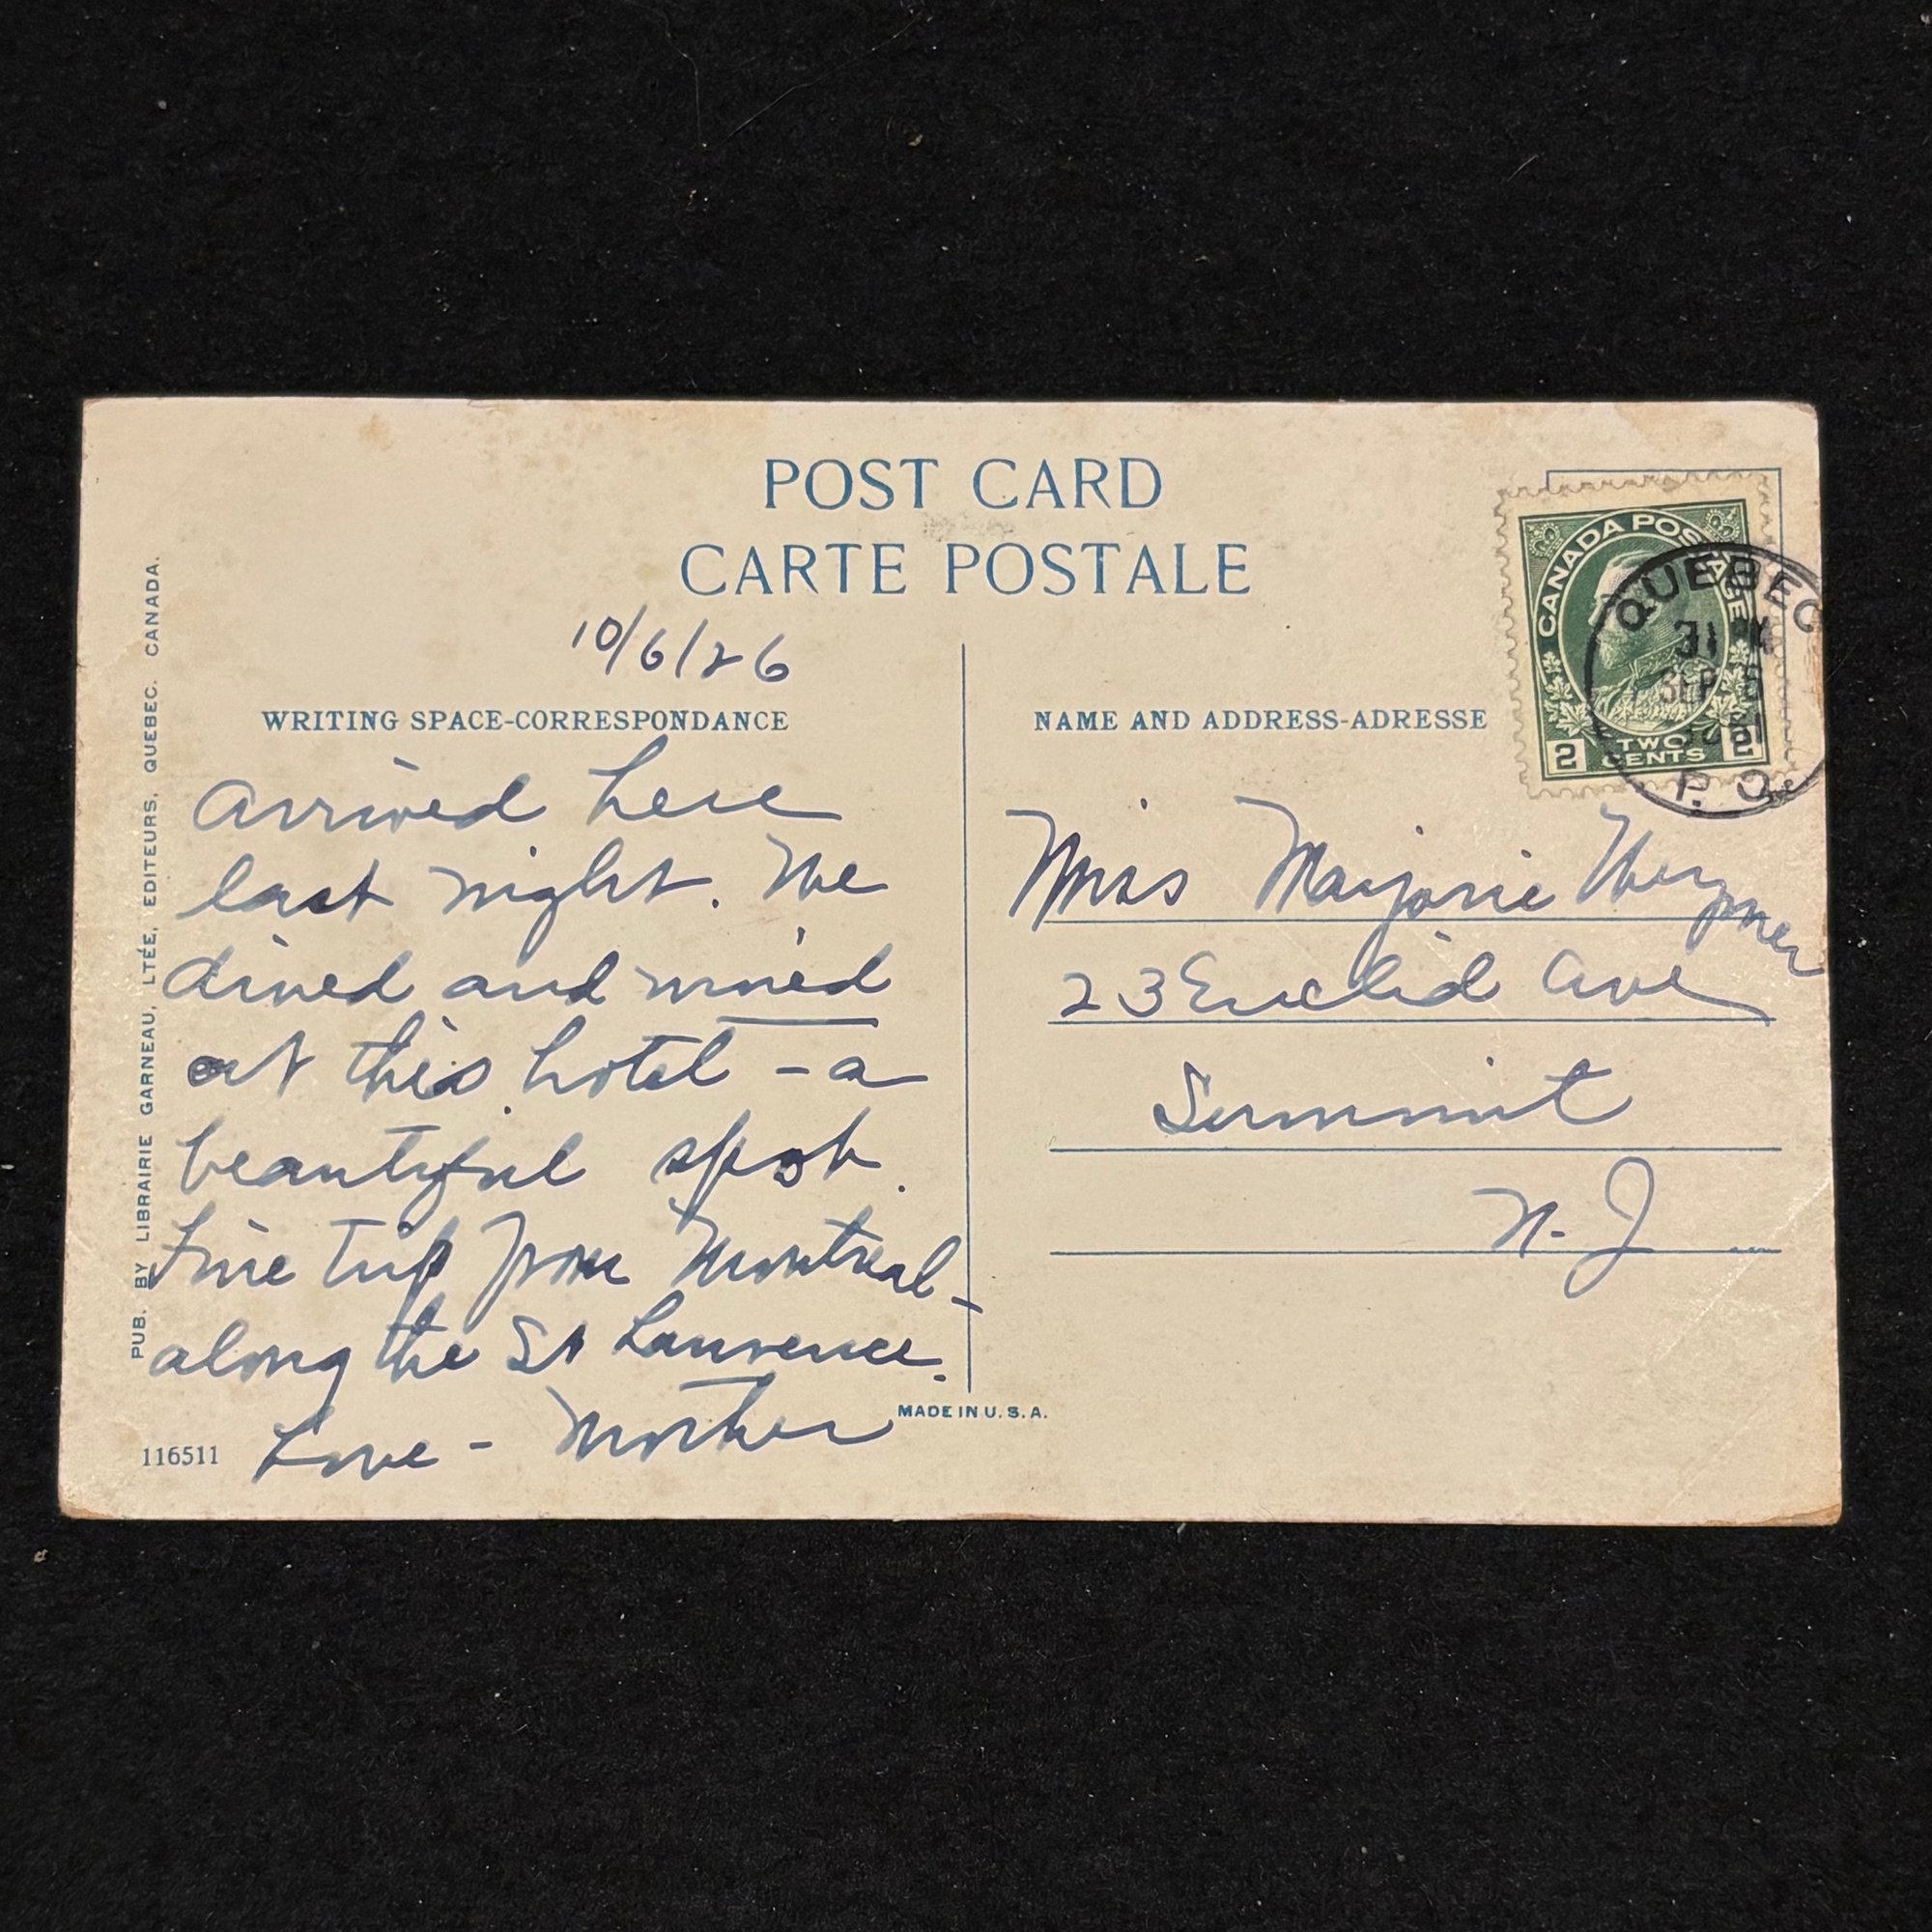 POST CARD
CARTE POSTALE
10/6/26
WRITING SPACE-CORRESPONDANCE
Arrived here
last night. We
dined and wined
at this hotel - a
beautiful spot.
Fine trip from Montreal -
along the St Lawrence.
Love - Mother
116511
PUB. BY LIBRAIRIE GARNEAU, LTÉE, EDITEURS, QUEBEC. CANADA.
MADE IN U.S.A.
NAME AND ADDRESS-ADRESSE
Miss Marjorie
23 Euclid Ave
Summit
N. J
CANADA POSTAGE
2 TWO CENTS 2
QUEBEC
SEP
P. Q.